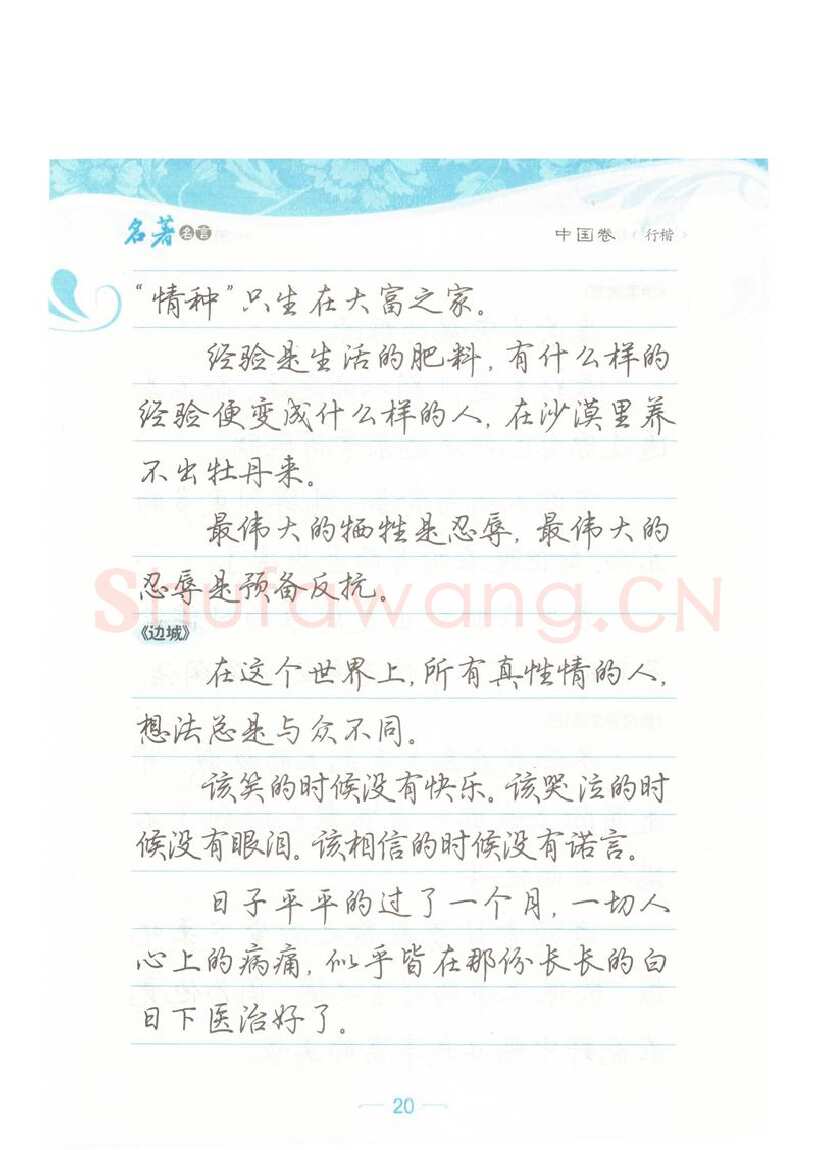 名著名言
中国卷 行楷
“情种”只生在大富之家。
经验是生活的肥料，有什么样的
经验便变成什么样的人，在沙漠里养
不出牡丹来。
最伟大的牺牲是忍辱，最伟大的
忍辱是预备反抗。
Shufawang.CN
《边城》
在这个世界上，所有真性情的人，
想法总是与众不同。
该笑的时候没有快乐。该哭泣的时
候没有眼泪。该相信的时候没有诺言。
日子平平的过了一个月，一切人
心上的病痛，似乎皆在那份长长的白
日下医治好了。
20